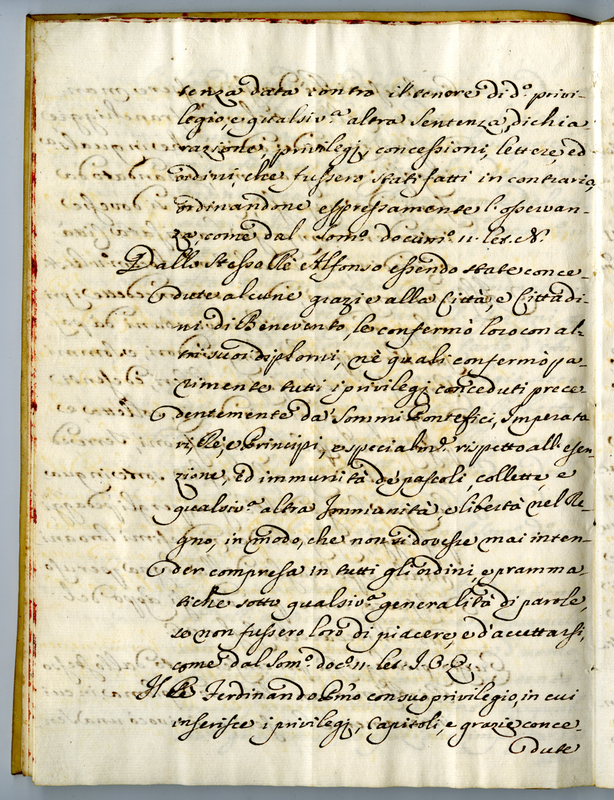 tenza data contro il tenore di d.º privi-
legio, e qualsiv.ª altra sentenza, dichia
razione, privilegj, concessioni, lettere, ed
ordini, che fussero stati fatti in contrario,
ordinandone espressamente l'osservan-
za, come dal Som.º docum.º 11. let. N.
Dallo stesso Rè Alfonso essendo state conce-
dute alcune grazie alla Città, e Cittadi-
ni di Benevento, le confermò loro con al-
tri suoi diplomi, nè quali confermò pa-
rimente tutti i privilegj conceduti prece-
dentemente da' Sommi Pontefici, Imperato
ri, Rè, e Principi, e specialm.e rispetto all'esen-
zione, ed immunità de' pascoli, collette e
qualsiv.ª altra Immunità, e libertà nel Re-
gno, in modo, che non si dovesse mai inten-
der compresa in tutti gli ordini, e pramma-
tiche sotto qualsiv.ª generalità di parole,
se non fussero loro di piacere, e d'accettarsi,
come dal Som.º doc.º 11. let. I. O. Q.
Il Rè Ferdinando P.mo con suo privilegio, in cui
inserisce i privilegj, Capitoli, e grazie conce-
dute